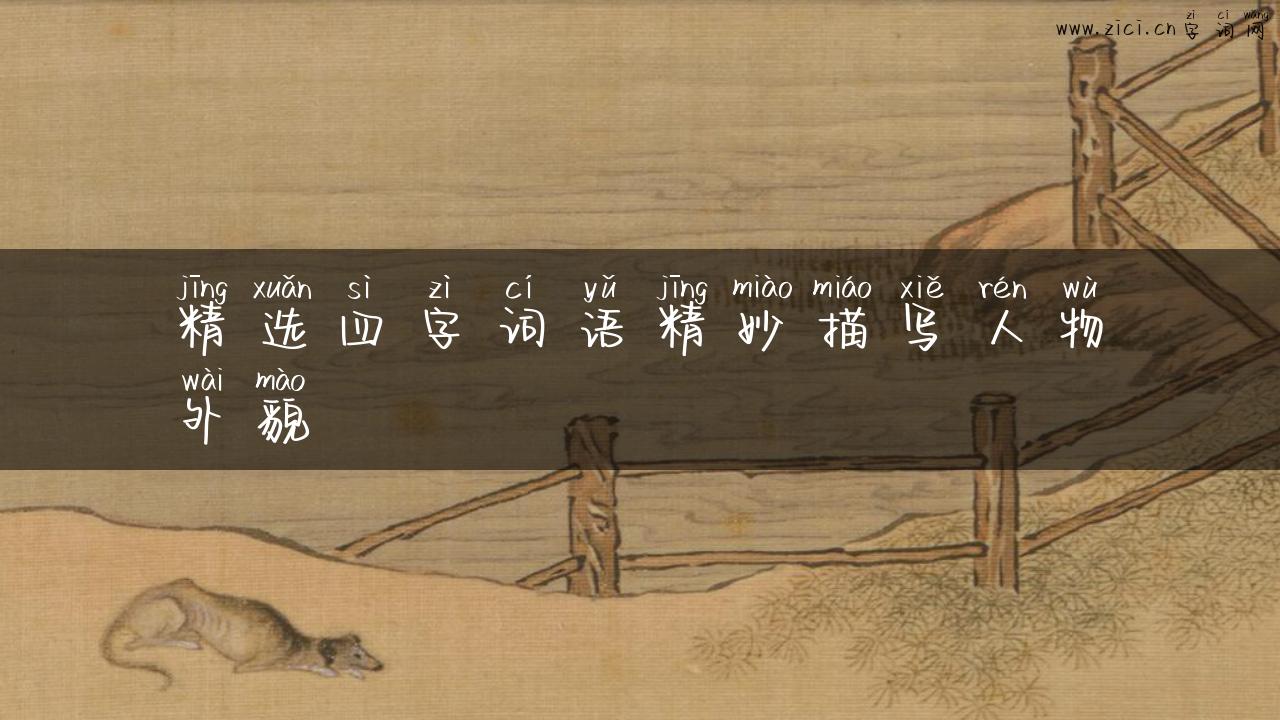 zì cí wǎng
www.zici.cn 字词网
jīng xuǎn sì zì cí yǔ jīng miào miáo xiě rén wù
精选四字词语精妙描写人物
wài mào
外貌